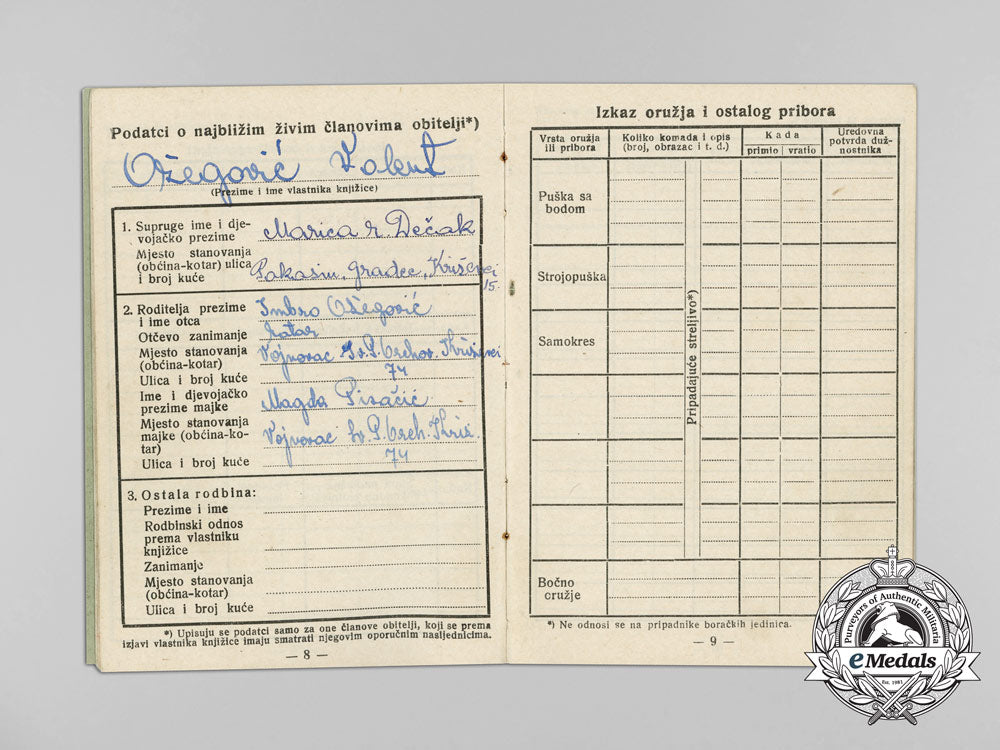 Podatci o najbližim živim članovima obitelji*)
Ožegović Valent
(Prezime i ime vlastnika knjižice)
1. Supruge ime i dje-
vojačko prezime Marica r. Dečak
Mjesto stanovanja
(obćina-kotar) ulica Gradec, Križevci
i broj kuće 15.
2. Roditelja prezime
i ime otca Imbro Ožegović
Otčevo zanimanje ratar
Mjesto stanovanja
(obćina-kotar) Vojnovac Sv. P. Orehov. Križevci
Ulica i broj kuće 74
Ime i djevojačko
prezime majke Magda Pisačić
Mjesto stanovanja
majke (obćina-ko-
tar) Vojnovac Sv. P. Oreh. Križ.
Ulica i broj kuće 74
3. Ostala rodbina:
Prezime i ime
Rodbinski odnos
prema vlastniku
knjižice
Zanimanje
Mjesto stanovanja
(obćina-kotar)
Ulica i broj kuće
*) Upisuju se podatci samo za one članove obitelji, koji se prema
izjavi vlastnika knjižice imaju smatrati njegovim oporučnim nasljednicima.
— 8 —
Izkaz oružja i ostalog pribora
Vrsta oružja
ili pribora
Koliko komada i opis
(broj, obrazac i t. d.)
Kada
primio vratio
Uredovna
potvrda duž-
nostnika
Puška sa
bodom
Strojopuška
Samokres
Pripadajuće streljivo*)
Bočno
oružje
*) Ne odnosi se na pripadnike boračkih jedinica.
— 9 —
Purveyors of Authentic Militaria
eMedals
Est. 1981